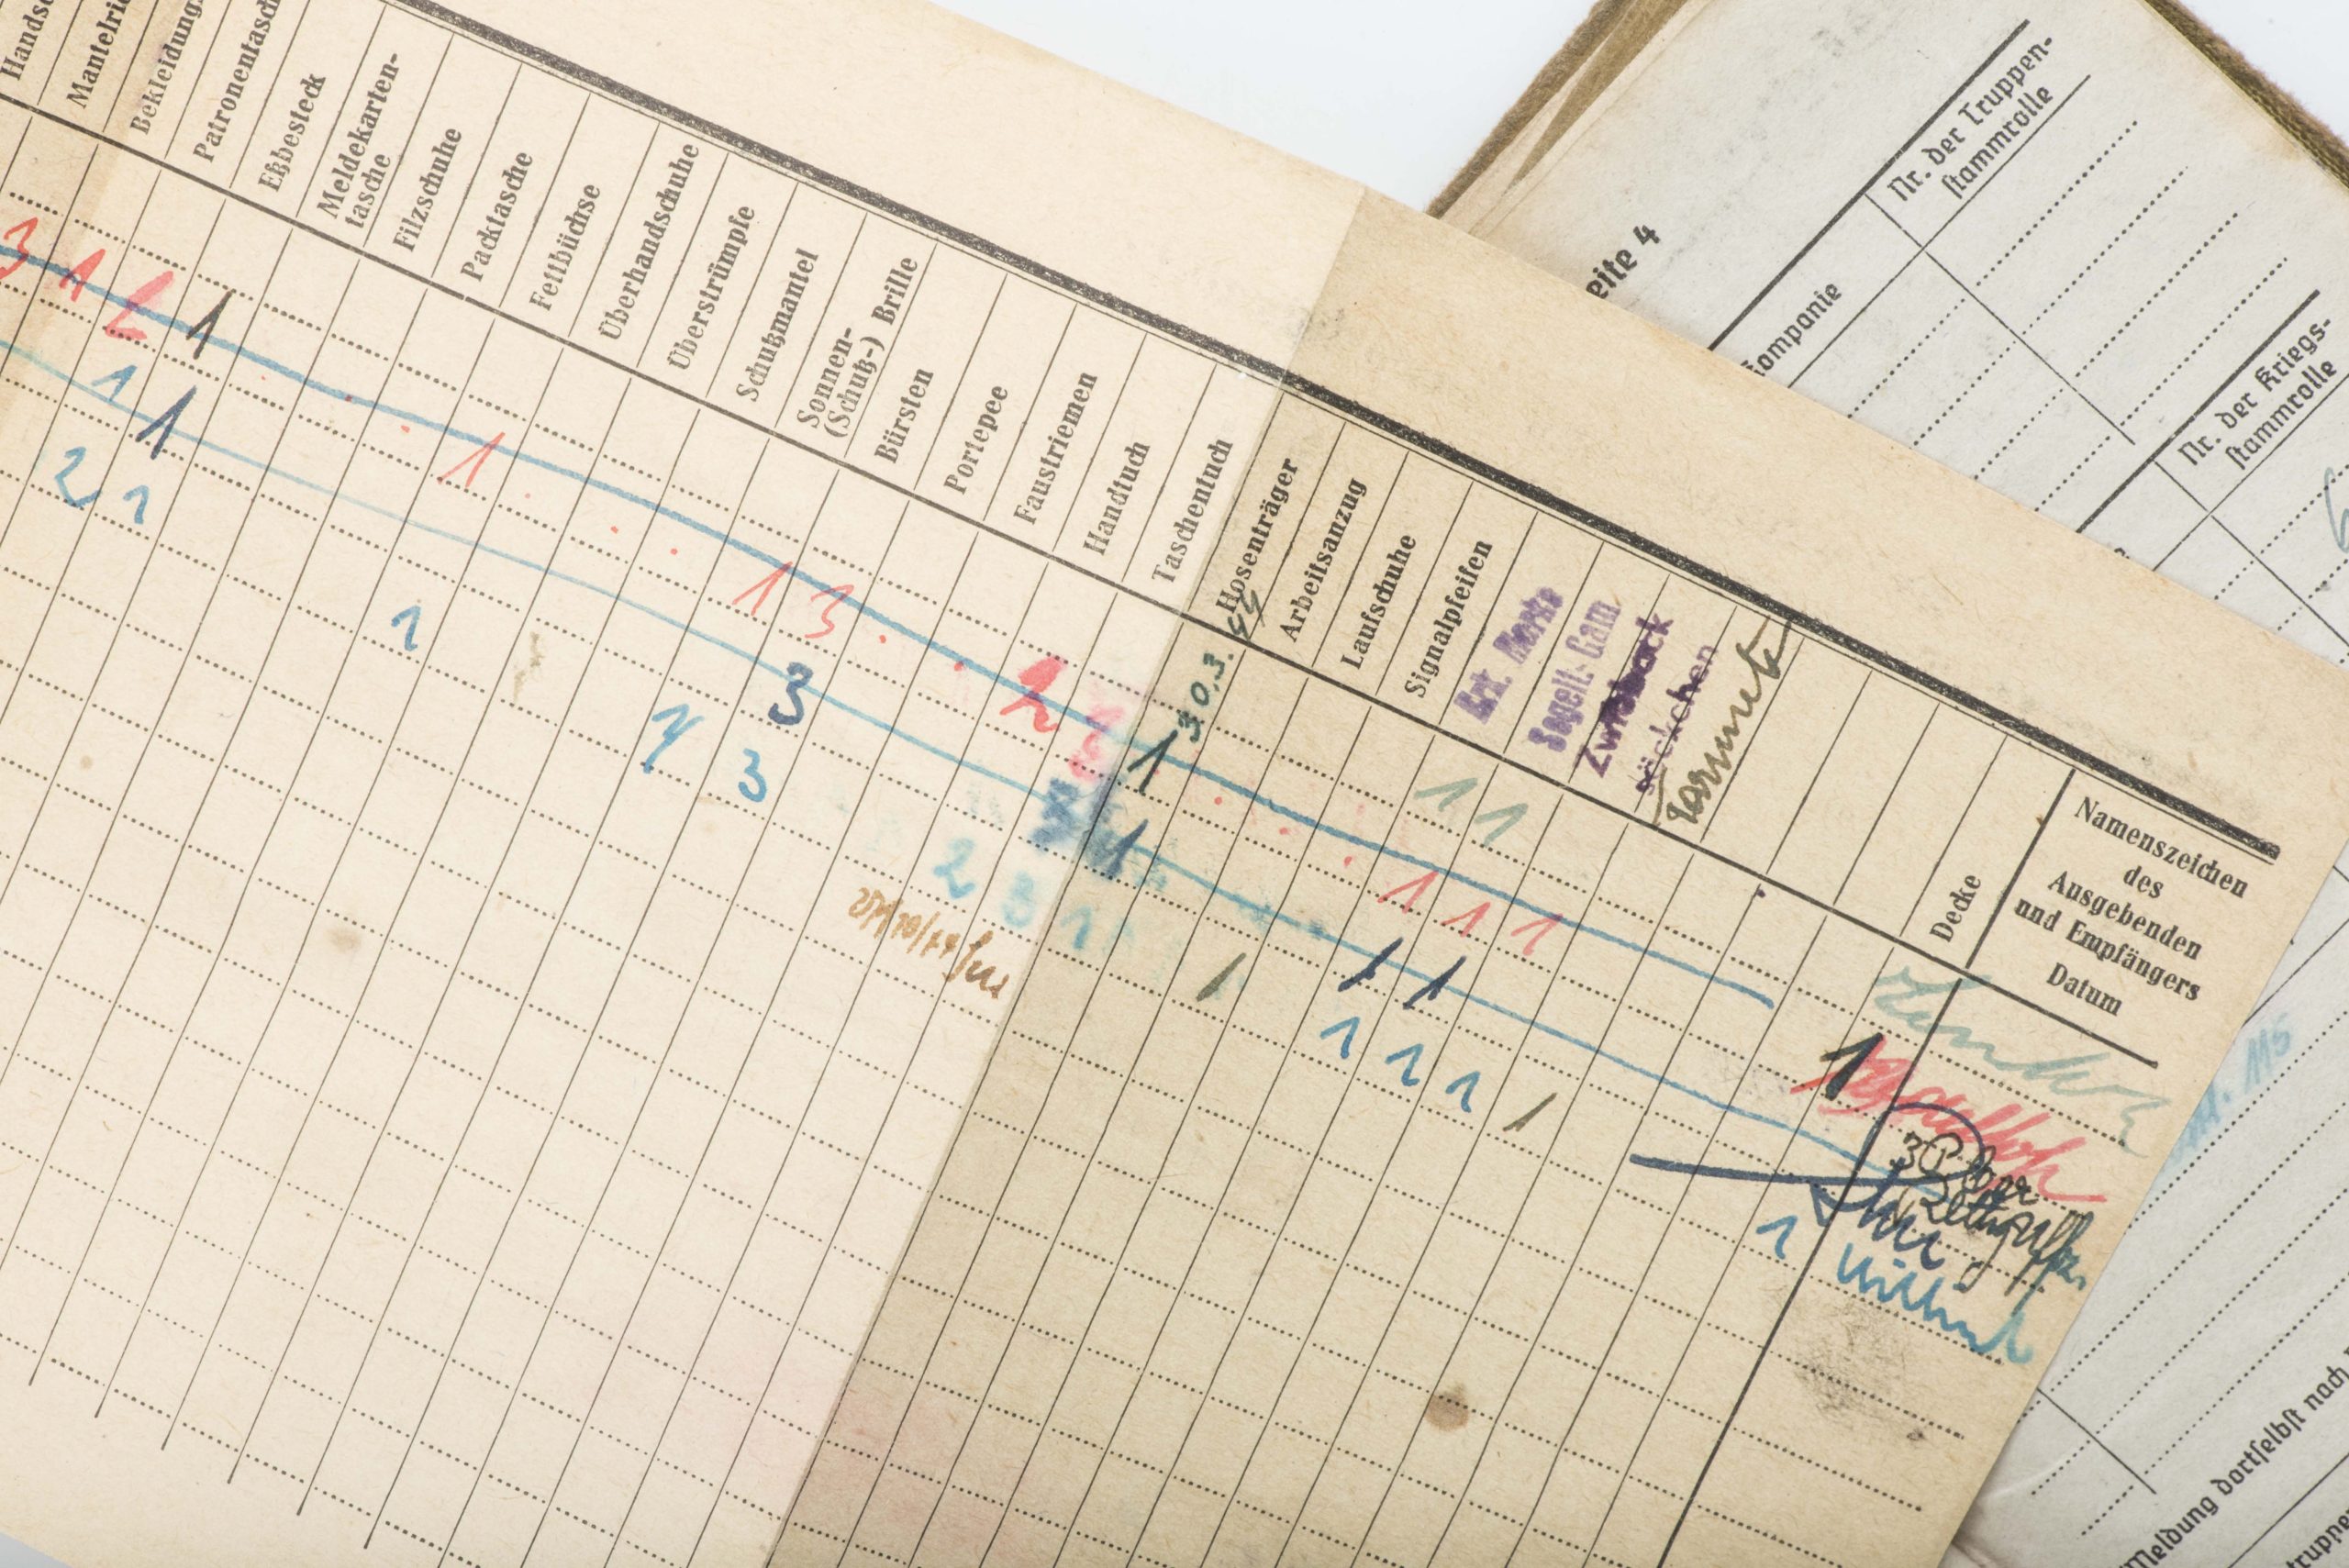 Handsc
Mantelri
Bekleidungs
Patronentasch
Eßbesteck
Meldekarten-
tasche
Filzschuhe
Packtasche
Fettbüchse
Überhandschuhe
Überstrümpfe
Schußmantel
Sonnen-
(Schuß-) Brille
Bürsten
Portepee
Faustriemen
Handtuch
Taschentuch
Hosenträger
Arbeitsanzug
Laufschuhe
Signalpfeifen
Erk. Marke
Segelt. Gam
Zwieback
säckchen
Decke
Namenszeichen
des
Ausgebenden
und Empfängers
Datum
30.3.
1 1
3 1 2 1
1
1 3
2
1
1 1 1
1
1 1
3
1
1 1
2 1
1
1 3
2 3 1
1 1 1
1
1
1
eite 4
Kompanie
Nr. der Truppen-
stammrolle
Nr. der Kriegs-
stammrolle
Meldung dortselbst nach